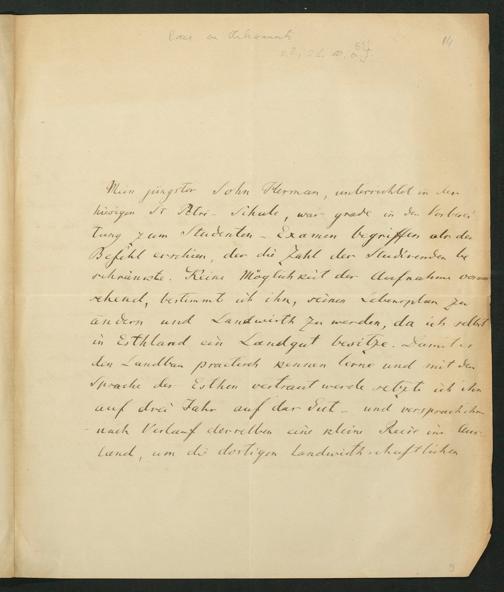 14
Mein jüngster Sohn Herman, unterrichtet in der
hiesigen St Petri-Schule, war grade in der Vorberei
tung zum Studenten-Examen begriffen als der
Befehl erschien, der die Zahl der Studirenden be
schränkte. Keine Möglichkeit der Aufnahme voraus
sehend, bestimmt ich ihn, seinen Lebensplan zu
ändern und Landwirth zu werden, da ich selbst
in Esthland ein Landgut besitze. Damit er
den Landbau practisch kennen lerne und mit der
Sprache der Esthen vertraut werde setzte ich ihn
auf drei Jahr auf das Gut - und versprach ihm
nach Verlauf derselben eine kleine Reise ins Aus-
land, um die dortigen landwirthschaftlichen